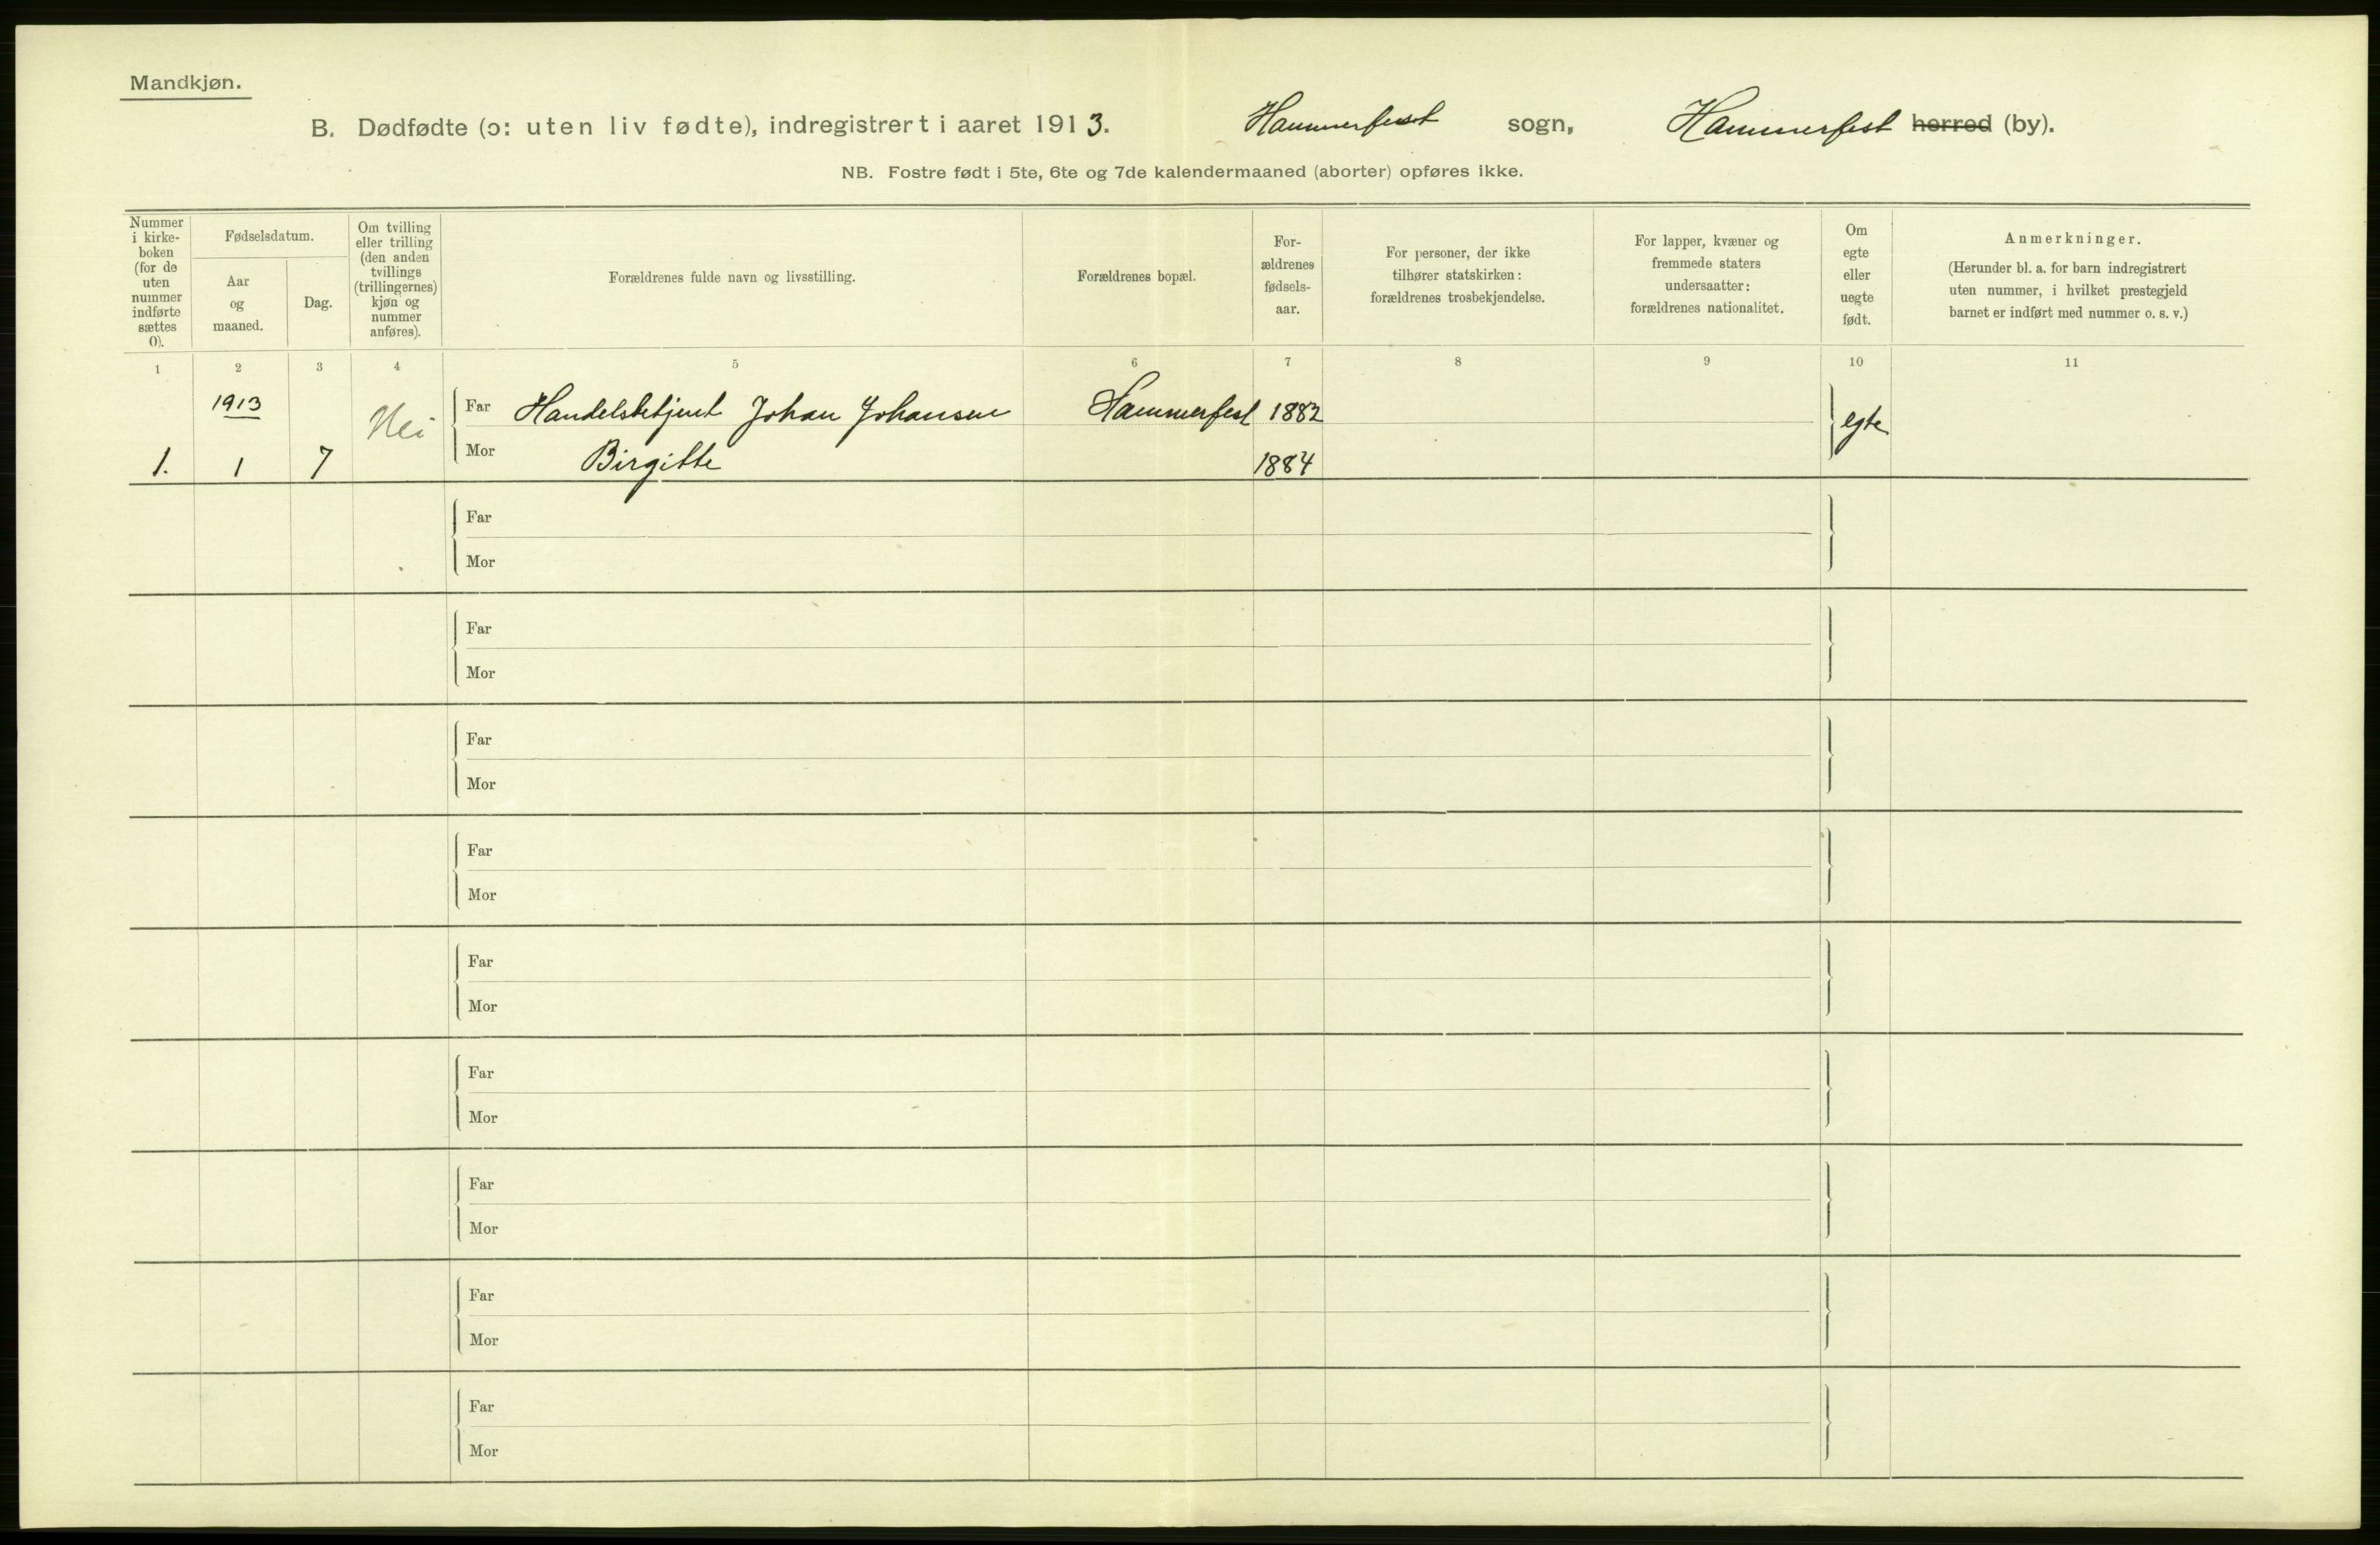 Mandkjøn.
B. Dødfødte (ɔ: uten liv fødte), indregistrert i aaret 1913. Hammerfest sogn, Hammerfest herred (by).
NB. Fostre født i 5te, 6te og 7de kalendermaaned (aborter) opføres ikke.
Nummer
i kirke-
boken
(for de
uten
nummer
indførte
sættes
0).
Fødselsdatum.
Aar
og
maaned.
Dag.
Om tvilling
eller trilling
(den anden
tvillings
(trillingernes)
kjøn og
nummer
anføres).
Forældrenes fulde navn og livsstilling.
Forældrenes bopæl.
For-
ældrenes
fødsels-
aar.
For personer, der ikke
tilhører statskirken:
forældrenes trosbekjendelse.
For lapper, kvæner og
fremmede staters
undersaatter:
forældrenes nationalitet.
Om
egte
eller
uegte
født.
Anmerkninger.
(Herunder bl. a. for barn indregistrert
uten nummer, i hvilket prestegjeld
barnet er indført med nummer o. s. v.)
1 2 3 4 5 6 7 8 9 10 11
1913 Nei Far Handelsbetjent Johan Johansen Hammerfest 1882 egte
1. 1 7 Mor Birgitte 1884
Far
Mor
Far
Mor
Far
Mor
Far
Mor
Far
Mor
Far
Mor
Far
Mor
Far
Mor
Far
Mor